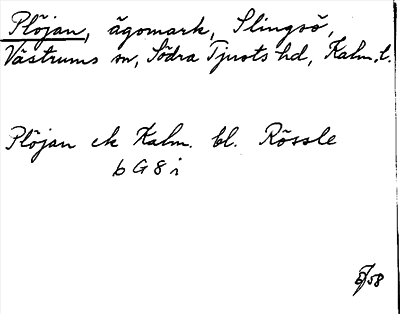 Plöjan, ägomark, Slingsö,
Västrums sn, Södra Tjusts hd, Kalm. l.
Plöjan ek Kalm. bl. Rössle
b G 8 i
58